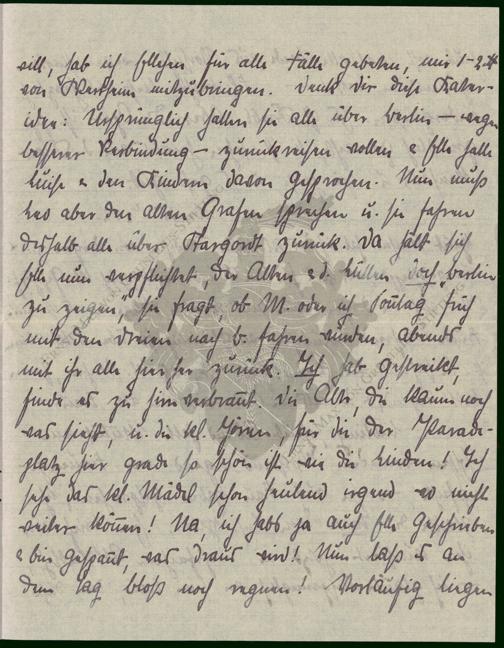 will, hab ich Ellchen für alle Fälle gebeten, mir 1-2 ℔
von Wertheim mitzubringen. Denk dir diese Kater-
idee: Ursprünglich hatten sie alle über Berlin – wegen
besserer Verbindung – zurückreisen wollen & Elle hatte
Luise & den Kindern davon gesprochen. Nun muß
Leo aber den alten Grafen sprechen u. sie fahren
deshalb alle über Stargordt zurück. Da hält sich
Elle nun verpflichtet, der Alten & d. Kindern doch „Berlin
zu zeigen", sie fragt, ob M. oder ich Sonntag früh
mit den dreien nach B. fahren würden, abends
mit ihr alle hierher zurück. Ich hab gestreikt,
finde es zu hirnverbrannt. Die Alte, die kaum noch
was sieht u. die kl. Jören, für die der Parade-
platz hier grade so schön ist wie die Linden! Ich
sehe das kl. Mädel schon heulend irgend wo nicht
weiter können! Na, ich habs ja auch Elle geschrieben
& bin gespannt, was draus wird! Nun laß es an
dem Tag bloß noch regnen! Vorläufig liegen